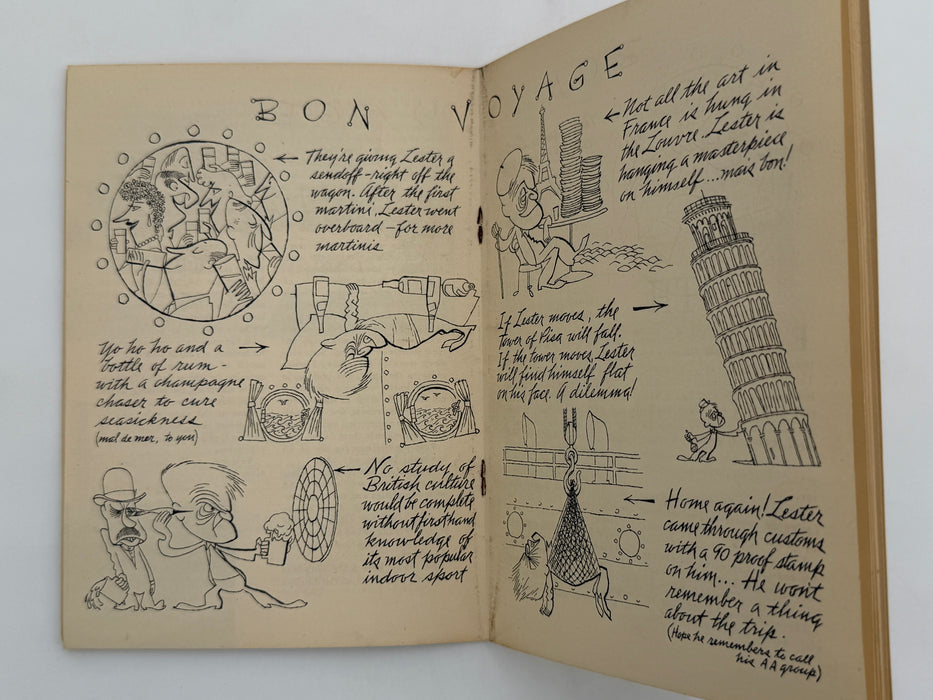 BON VOYAGE
They're giving Lester a
sendoff - right off the
wagon. After the first
martini, Lester went
overboard - for more
martinis
Yo ho ho and a
bottle of rum -
with a champagne
chaser to cure
seasickness
(mal de mer, to you)
No study of
British culture
would be complete
without firsthand
knowledge of
its most popular
indoor sport
Not all the art in
France is hung in
the Louvre. Lester is
hanging a masterpiece
on himself...mais bon!
If Lester moves, the
tower of Pisa will fall.
If the tower moves, Lester
will find himself flat
on his face. A dilemma!
Home again! Lester
came through customs
with a 90 proof stamp
on him... He won't
remember a thing
about the trip.
(Hope he remembers to call
his AA group)